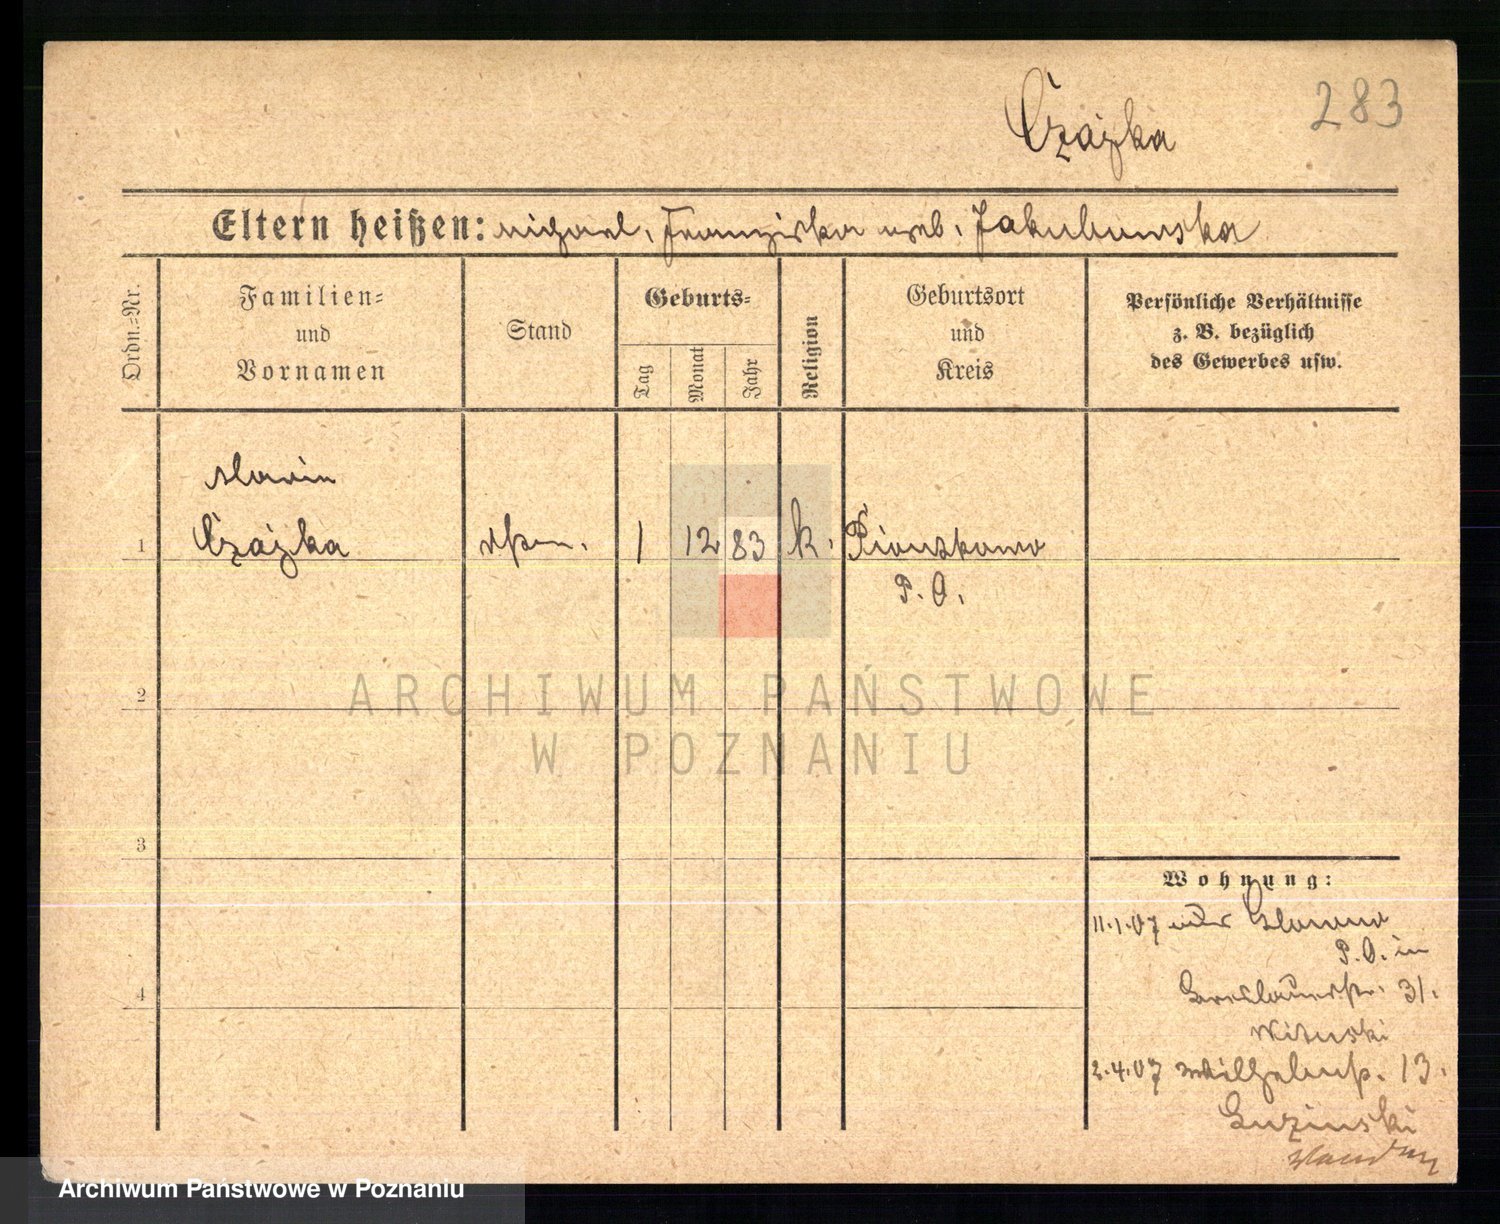 Czajka 283
Eltern heißen: Michael, Franziska geb. Jakubowska
Ordn.-Nr.
Familien-
und
Vornamen
Stand
Geburts-
Tag
Monat
Jahr
Religion
Geburtsort
und
Kreis
Persönliche Verhältnisse
z. B. bezüglich
des Gewerbes usw.
Marie
1 Czajka 1 12 83 k.
P. O.
2
ARCHIWUM PAŃSTWOWE
W POZNANIU
3
Wohnung:
11.1.07
P. O. in
Breslauerstr. 31.
Wituski
2.4.07 Wilhelmstr. 13.
4
Archiwum Państwowe w Poznaniu